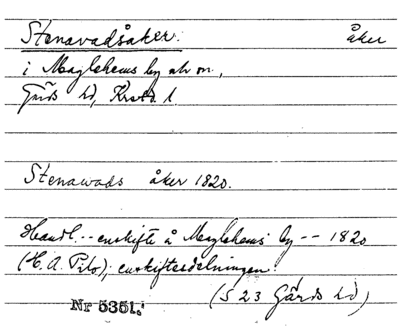 Stenavadsåker. åker
i Maglehems by och sn.,
Gärds hd, Krstd. l
Stenawads åker 1820.
Handl. -- enskifte å Maglehems by -- 1820
(H. A. Pilo); enskiftesdelningen.
(S 23 Gärds hd)
Nr 5351.